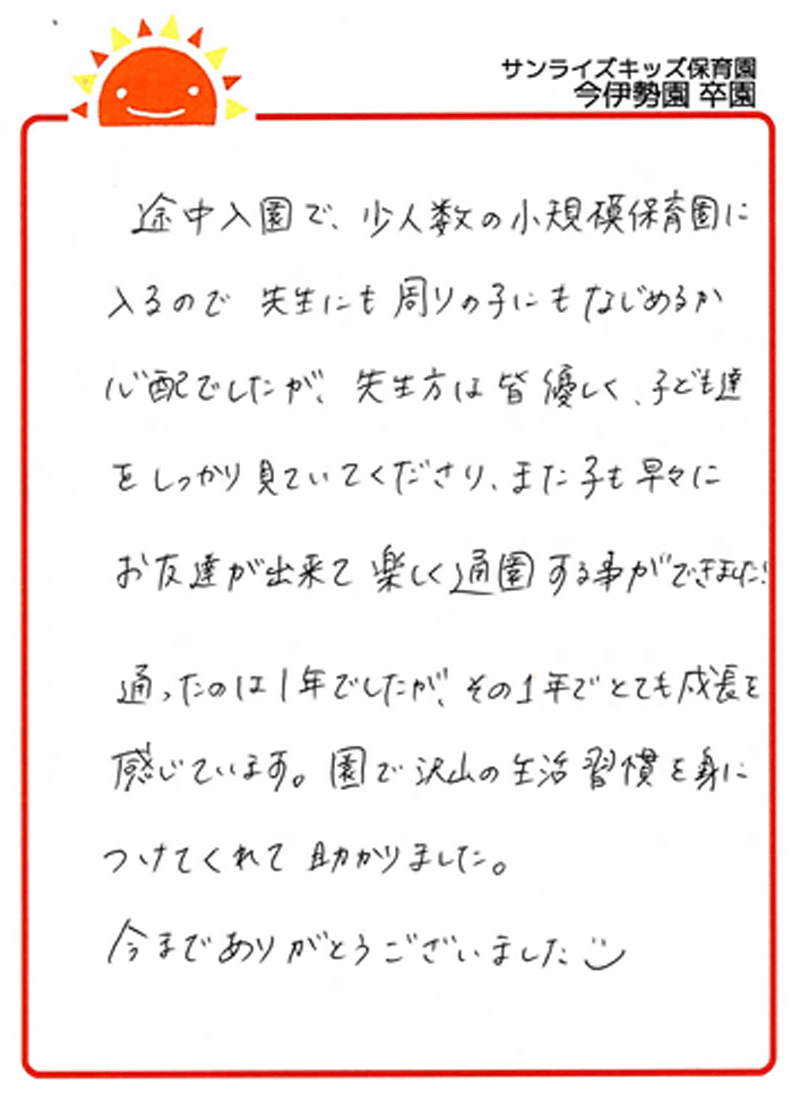 サンライズキッズ保育園
今伊勢園 卒園
途中入園で、少人数の小規模保育園に
入るので 先生にも周りの子にもなじめるか
心配でしたが、先生方は皆優しく、子ども達
をしっかり見ていてくださり、また子も早々に
お友達が出来て楽しく通園する事ができました!
通ったのは1年でしたが、その1年でとても成長を
感じています。園で沢山の生活習慣を身に
つけてくれて助かりました。
今までありがとうございました